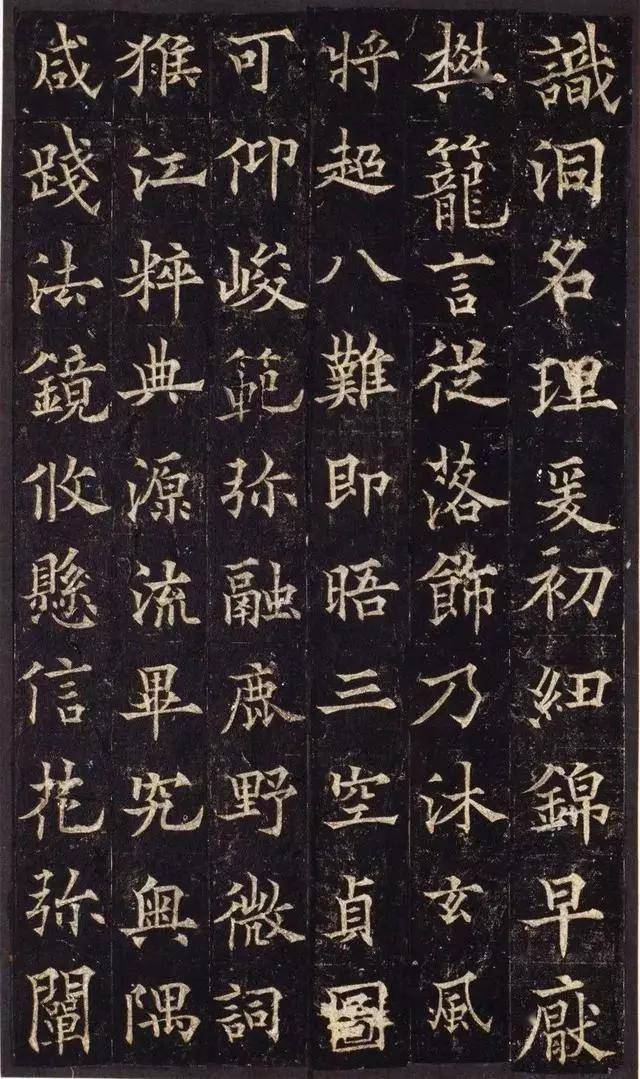 識洞名理爰初紐錦早厭
樊籠言從落飾乃沐玄風
將超八難即晤三空貞圖
可仰峻範弥融鹿野微詞
猴江粹典源流畢究奥隅
咸踐法鏡攸懸信花弥闡